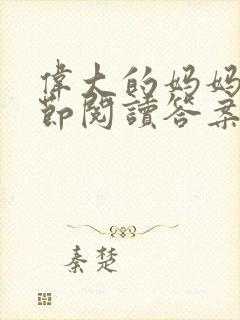 偉大的妈妈
節閱讀答案
秦楚